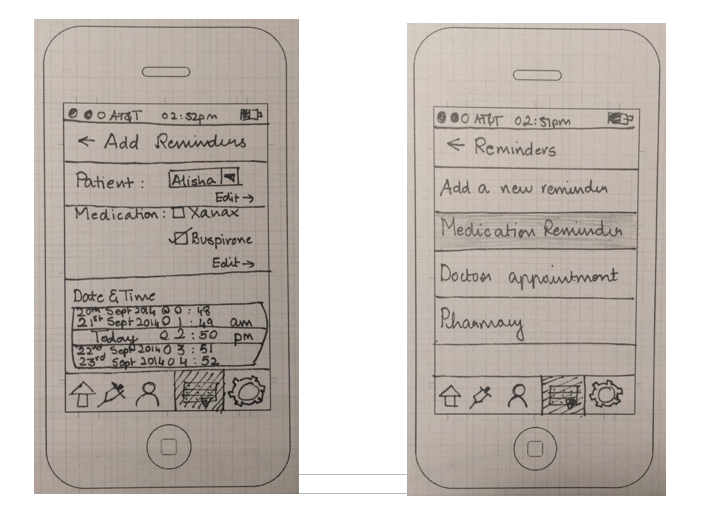 AT&T 02:52pm
← Add Reminders
Patient: Alisha
Edit →
Medication: Xanax
Buspirone
Edit →
Date & Time
20th Sept 2014 00:48
21st Sept 2014 01:49 am
Today 02:50 pm
22nd Sept 2014 03:51
23rd Sept 2014 04:52
AT&T 02:51pm
← Reminders
Add a new reminder
Medication Reminder
Doctor appointment
Pharmacy